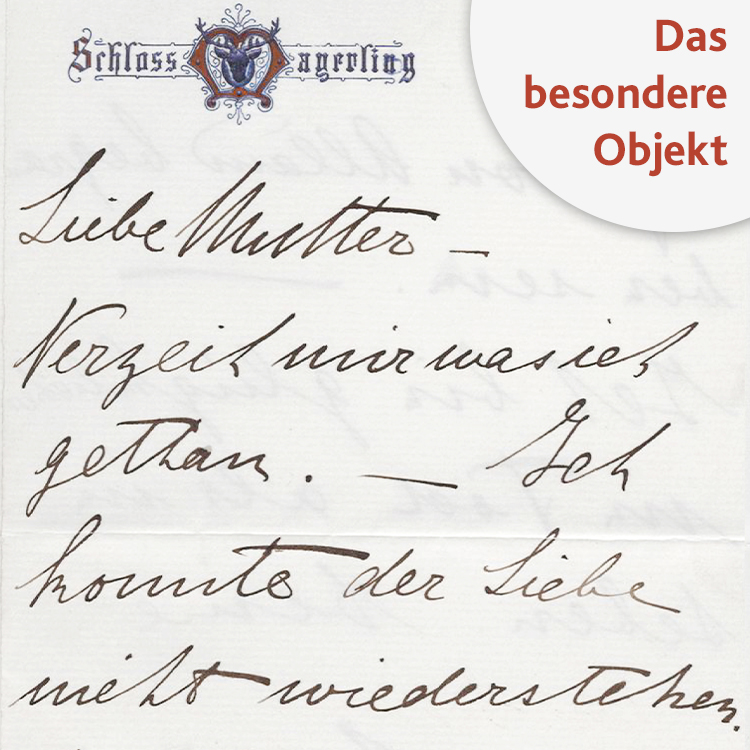 Schloss Mayerling
Das
besondere
Objekt
Liebe Mutter –
Verzeih mir was ich
gethan. – Ich
konnte der Liebe
nicht wiederstehen.